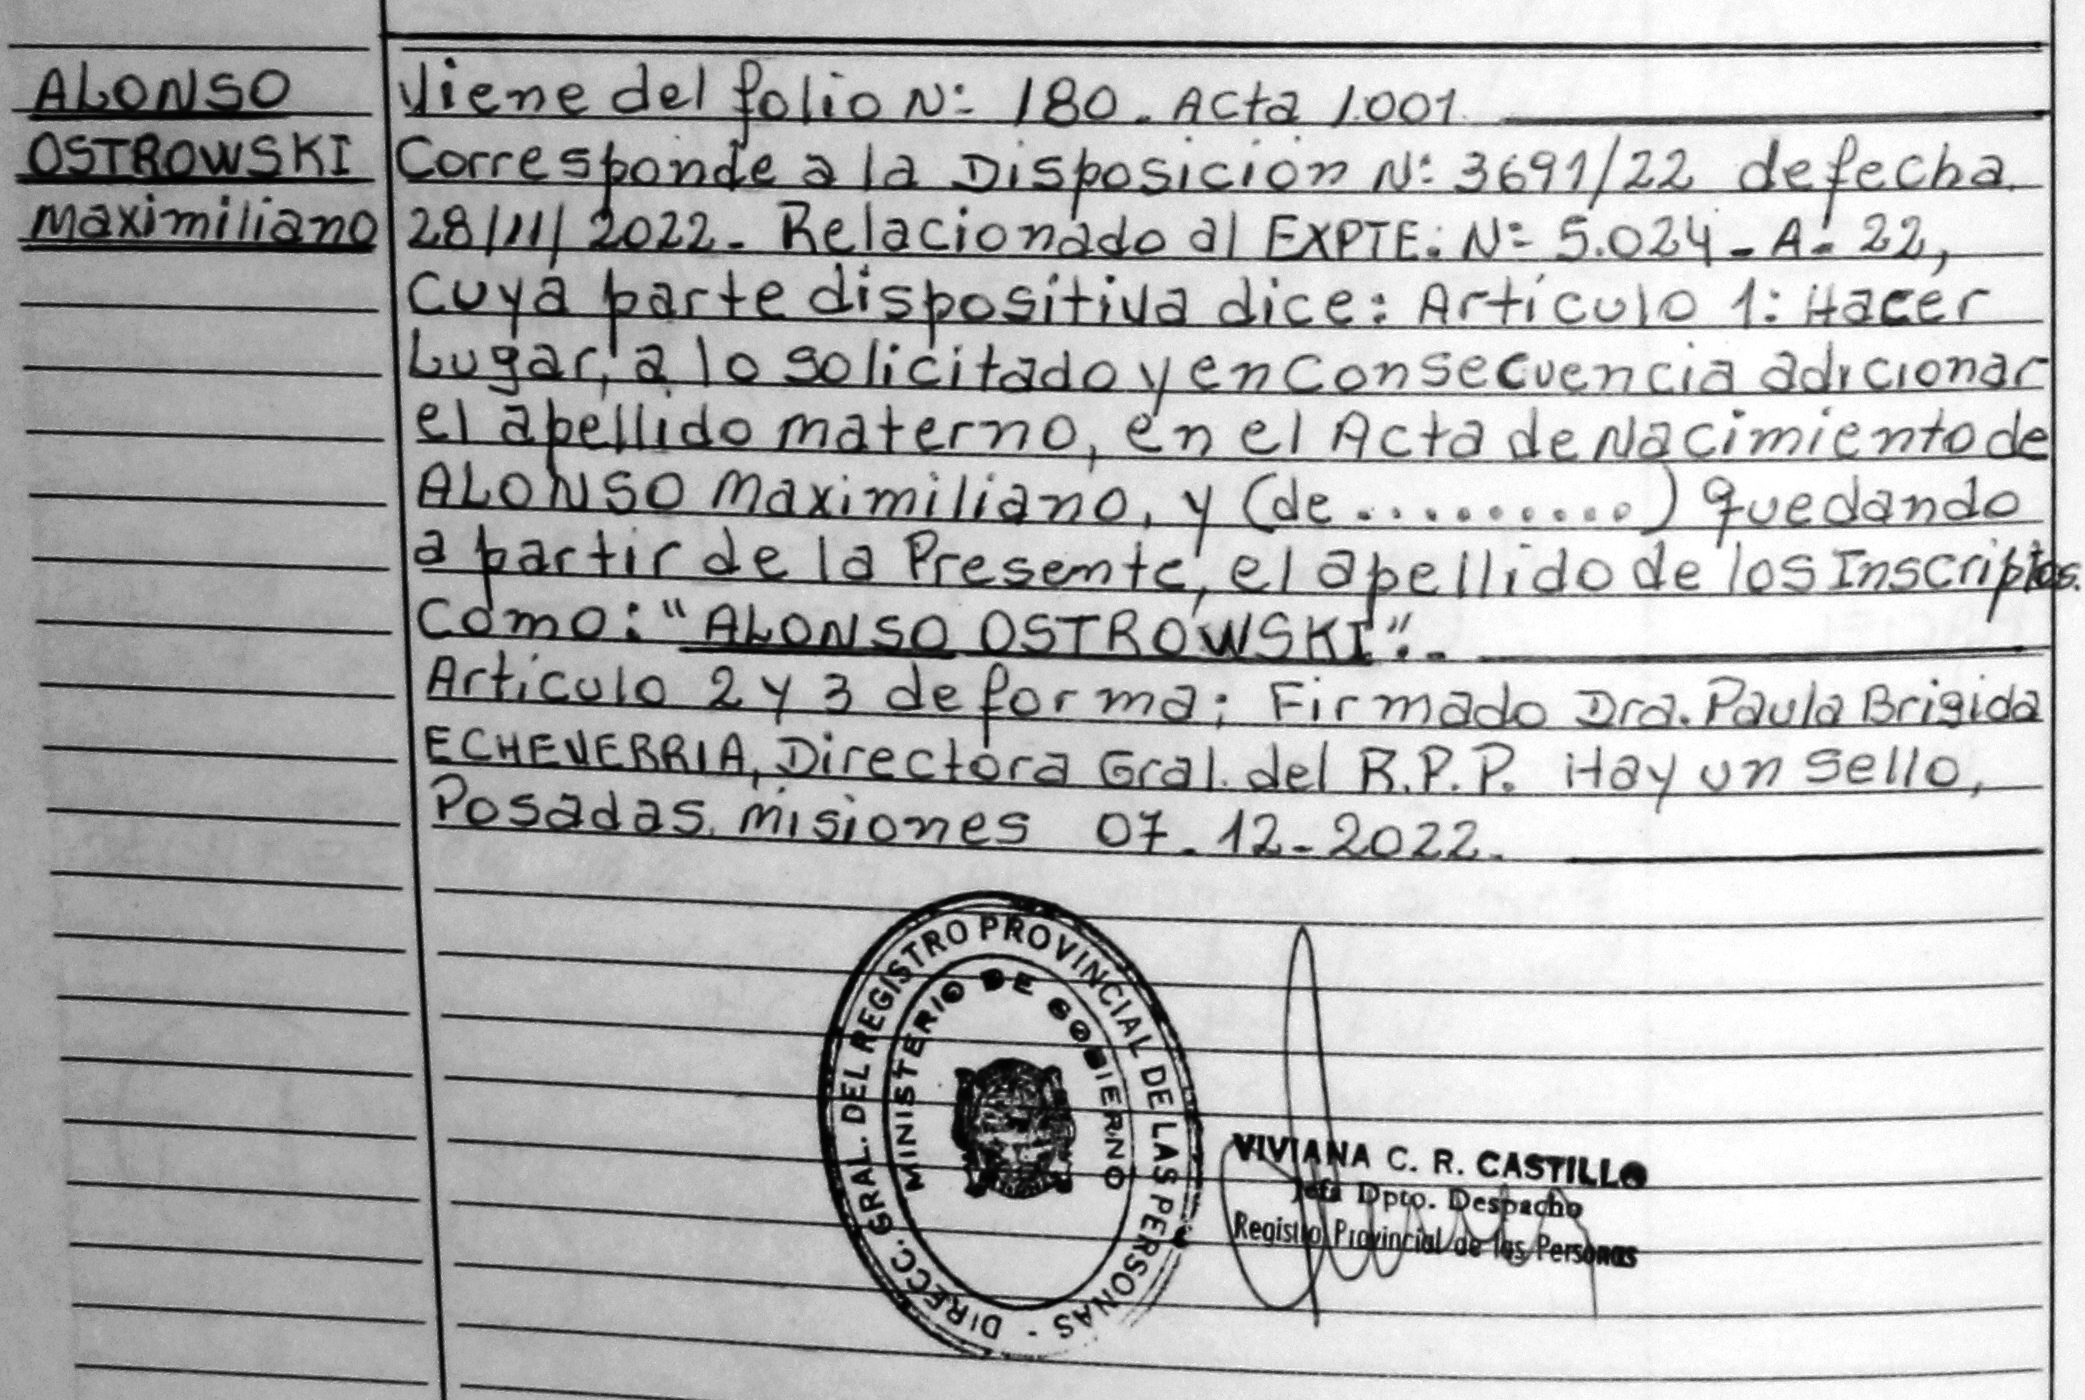 ALONSO
OSTROWSKI
Maximiliano
Viene del folio Nº 180. Acta 1.001.
Corresponde a la Disposición Nº 3691/22 de fecha
28/11/2022. Relacionado al EXPTE. Nº 5.024-A-22,
Cuya parte dispositiva dice: Artículo 1: Hacer
Lugar, a lo solicitado y en Consecuencia adicionar
el apellido materno, en el Acta de Nacimiento de
ALONSO Maximiliano, y (de ..........) quedando
a partir de la Presente, el apellido de los Inscriptos.
Como: "ALONSO OSTROWSKI".-
Artículo 2 y 3 de forma; Firmado Dra. Paula Brigida
ECHEVERRIA, Directora Gral. del R.P.P. Hay un Sello,
Posadas, Misiones 07-12-2022.
DIRECC. GRAL. DEL REGISTRO PROVINCIAL DE LAS PERSONAS -
MINISTERIO DE GOBIERNO
VIVIANA C. R. CASTILLO
Jefa Dpto. Despacho
Registro Provincial de las Personas